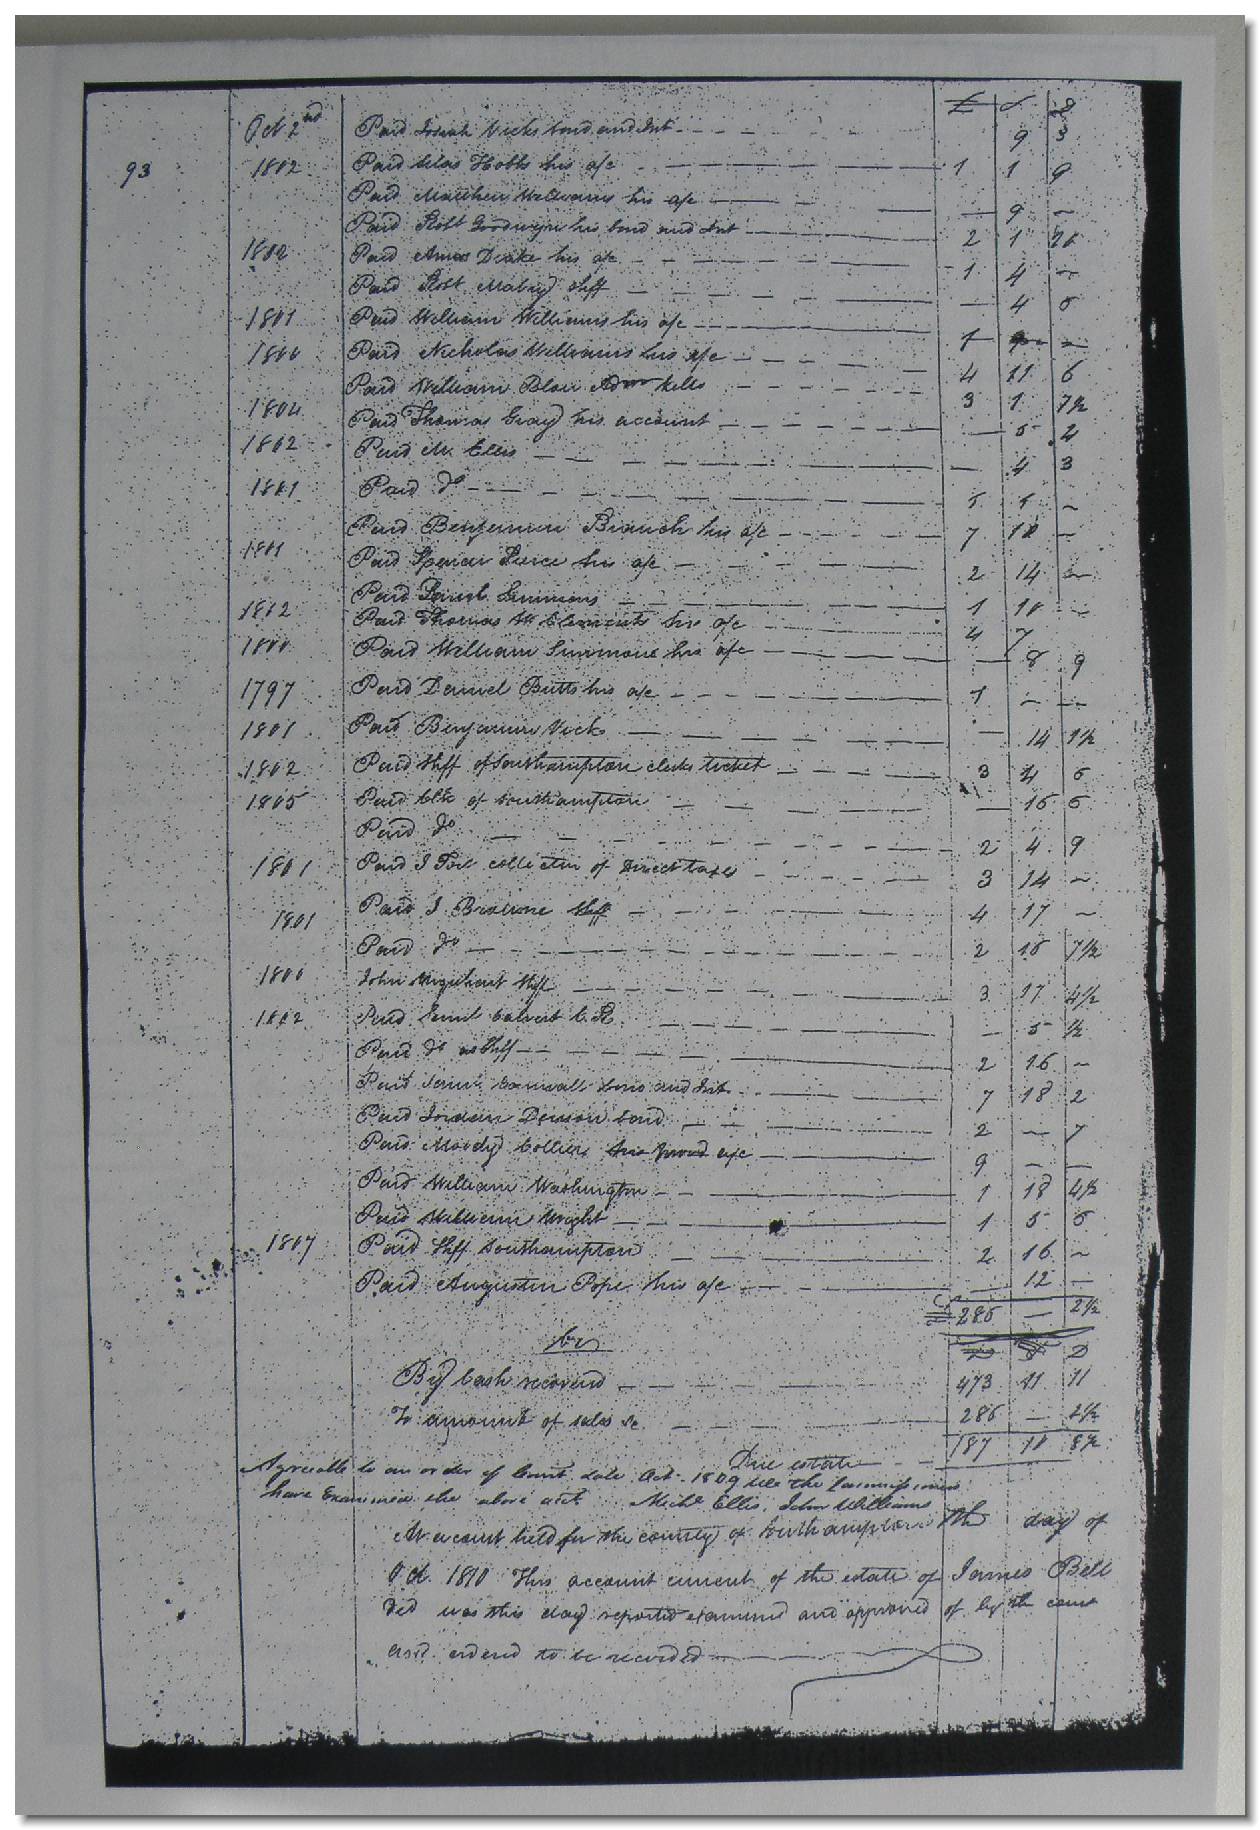 £ S D
Oct 2nd Paid Josiah Vicks bond and Int 9 3
93 1802 Paid Silas Hobbs his a/c 1 1 9
Paid Matthew Williams his a/c — 9 —
Paid Robt Goodwyn his bond and Int 2 1
1802 Paid Amos Drake his a/c 1 4 —
Paid Robt Mabry Shff — 4 6
1801 Paid William Williams his a/c 1
1800 Paid Nicholas Williams his a/c 4 11 6
Paid William Blow Admr 3 1 7½
1804 Paid Thomas Gray his account — 5 4
1802 Paid M. Ellis — 4 3
1801 Paid do 1 1 —
Paid Benjamin Branch his a/c 7 10 —
1801 Paid Spencer Pierce his a/c 2 14 —
Paid Simmons 1 10 —
1802 Paid Thomas W Clements his a/c 4 7
1800 Paid William Simmons his a/c — 8 9
1797 Paid Daniel Butts his a/c 1 — —
1801 Paid Benjamin Vicks — 14 1½
1802 Paid Shff of Southampton clerks ticket 3 4 6
1805 Paid Clk of Southampton — 16 6
Paid do 2 4 9
1801 Paid J collector of Direct taxes 3 14 —
1801 Paid J Browne Shff 4 17 —
Paid do 2 7½
1800 John Urquhart Shff 3 17 4½
1802 Paid Saml Calvert — 5 ½
Paid do as Shff 2 16 —
Paid bond and Int 7 18 2
Paid Jordan Denson bond 2 — 7
Paid Moody Collier his a/c 9 — —
Paid William Washington 1 18 4½
Paid William Wright 1 5 6
1807 Paid Shff Southampton 2 16 —
Paid Augustin Pope his a/c 12 —
£ 286 — 2½
Cr £ S D
By Cash received 473 11 11
To amount of sales &c 286 — 2½
Due estate 187 11 8½
Agreeable to an order of Court date Oct 1809 We the Commissioners
have Examined the above acct Michl Ellis, John Williams
At a court held for the county of Southampton th day of
Oct. 1810 This account current of the estate of James Bell
decd was this day reported examined and approved of by the court
and ordered to be recorded